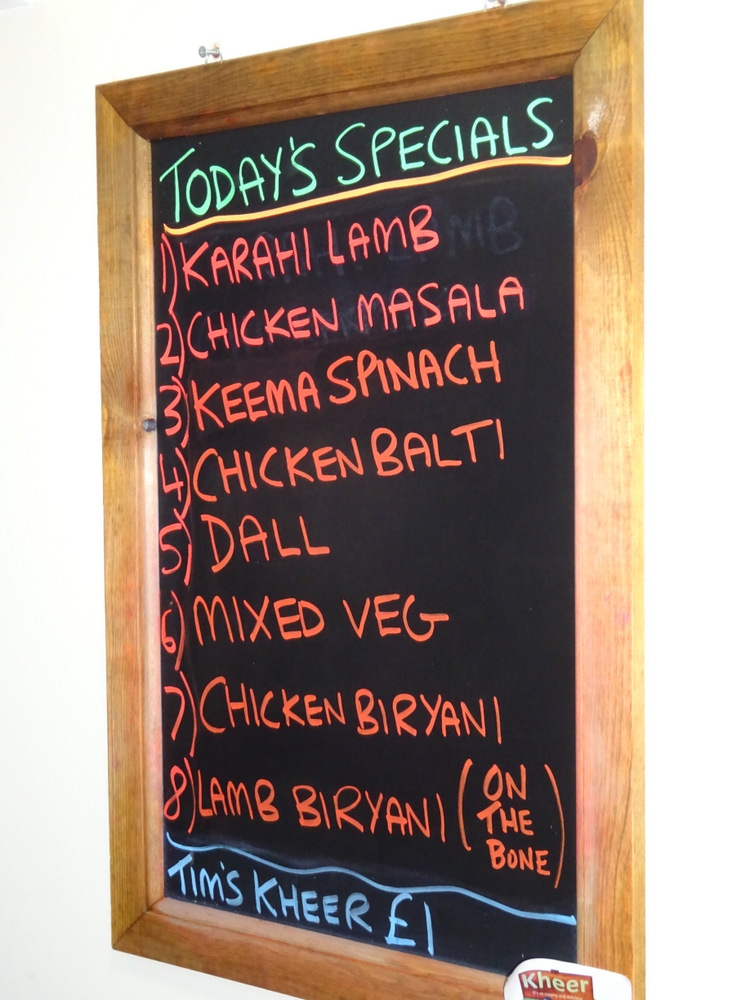 TODAY'S SPECIALS
1) KARAHI LAMB
2) CHICKEN MASALA
3) KEEMA SPINACH
4) CHICKEN BALTI
5) DALL
6) MIXED VEG
7) CHICKEN BIRYANI
8) LAMB BIRYANI (ON THE BONE)
TIM'S KHEER £1
Kheer